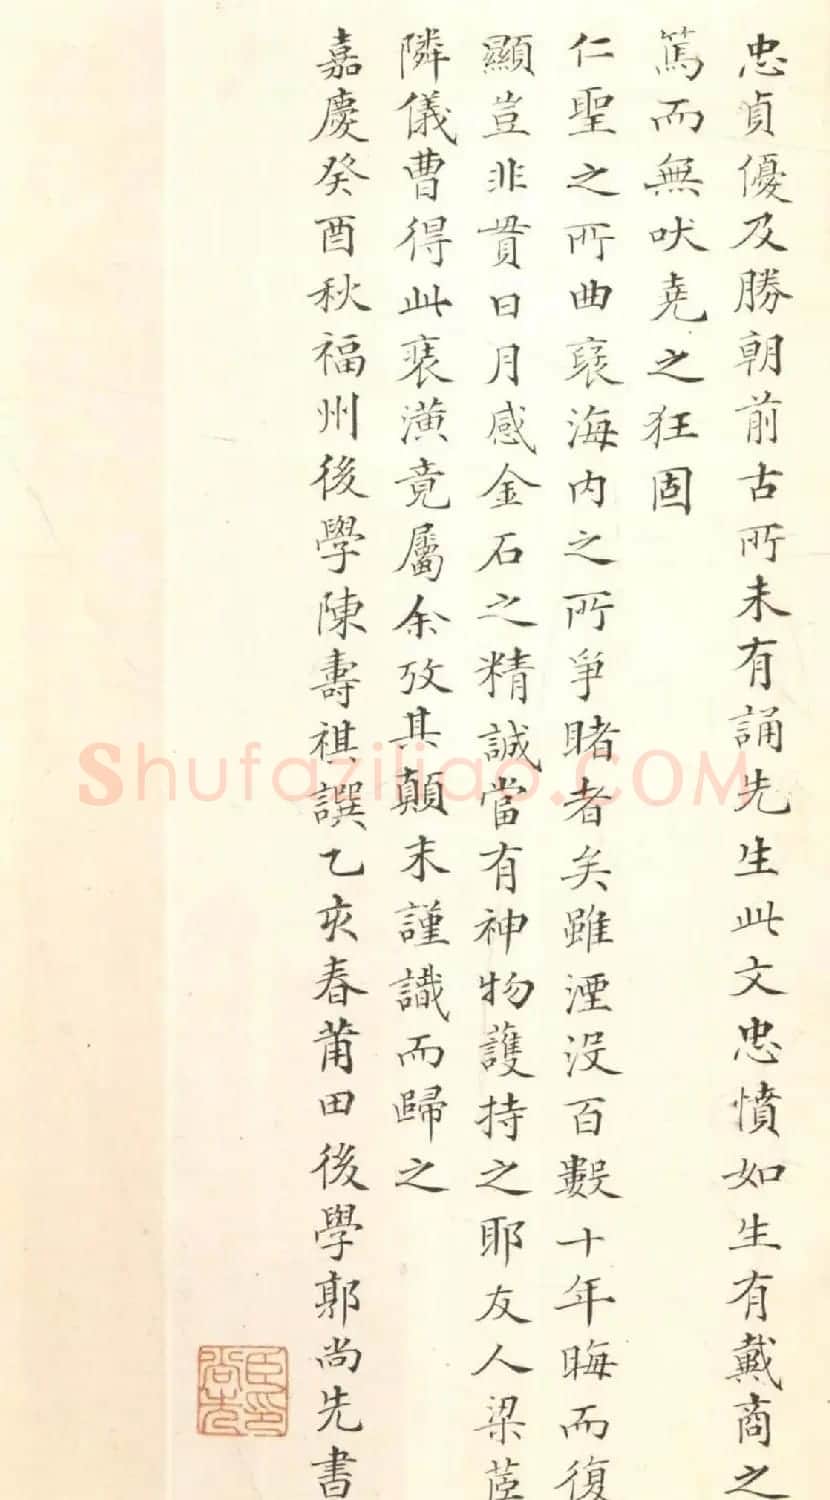 忠貞優及勝朝前古所未有誦先生此文忠憤如生有戴商之
篤而無吠堯之狂固
仁聖之所曲襃海内之所爭睹者矣雖湮没百數十年晦而復
顯豈非貫日月感金石之精誠當有神物護持之耶友人梁茝
隣儀曹得此裵潢竟屬余攷其顛末謹識而歸之
嘉慶癸酉秋福州後學陳壽祺譔乙亥春莆田後學郭尚先書
臣尚先印
Shufaziliao.COM